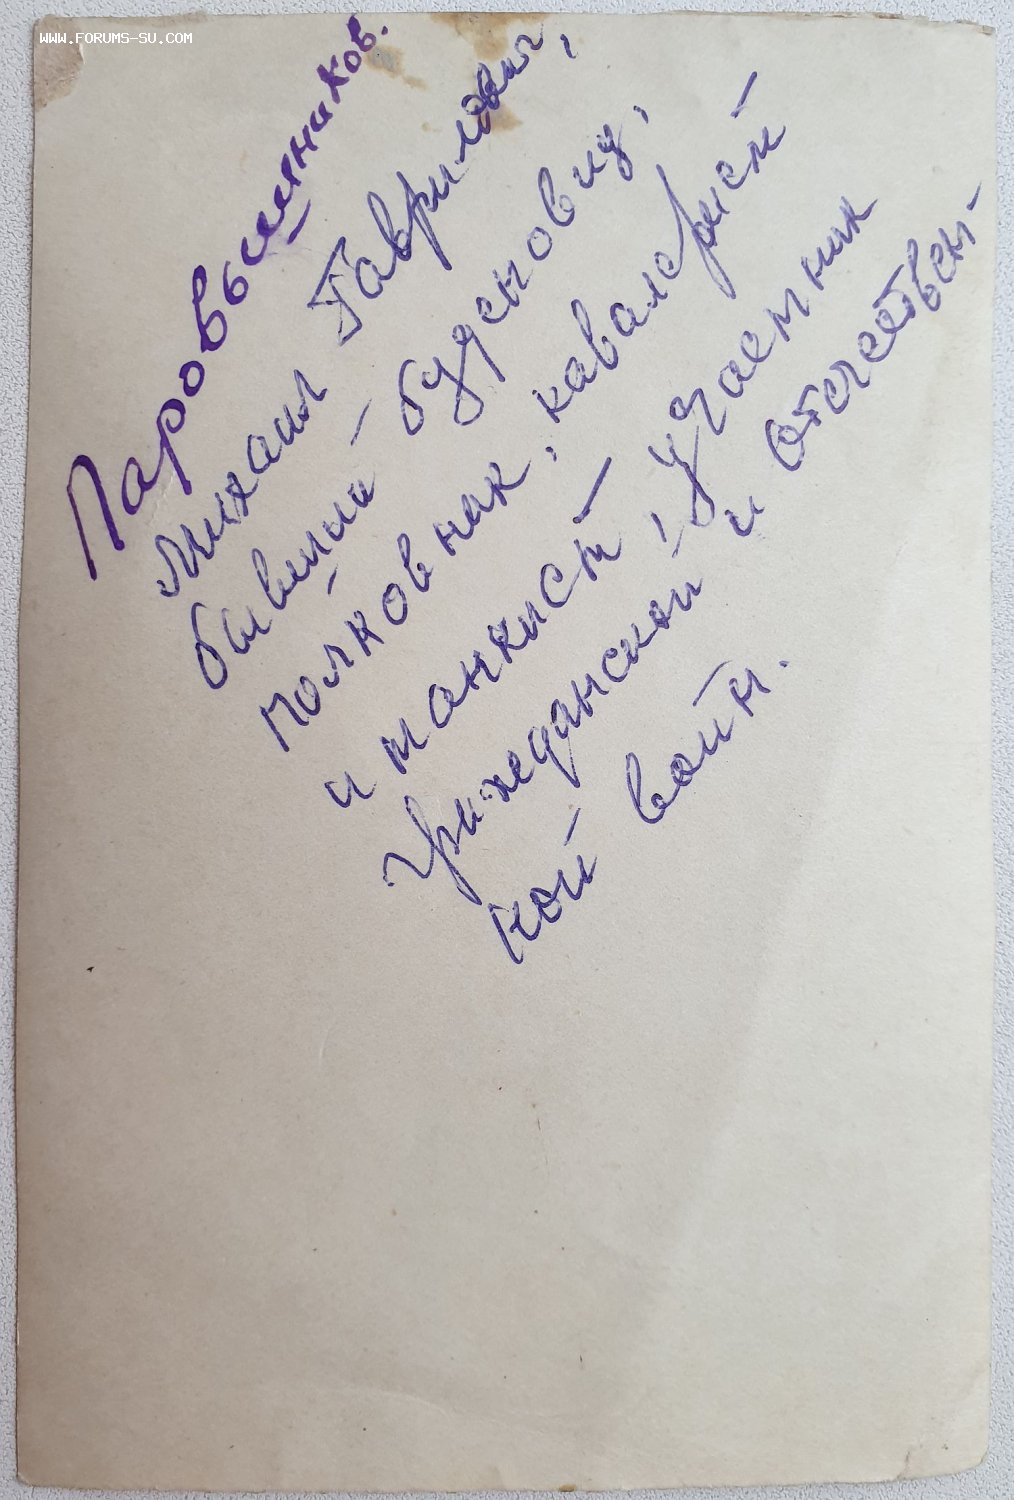 WWW.FORUMS-SU.COM
Паровьсшянников.
Михаил Гаврилович,
бывший буденовиц,
полковник, кавалерист
и танкист, участник
гражданской и отечествен-
ной войн.